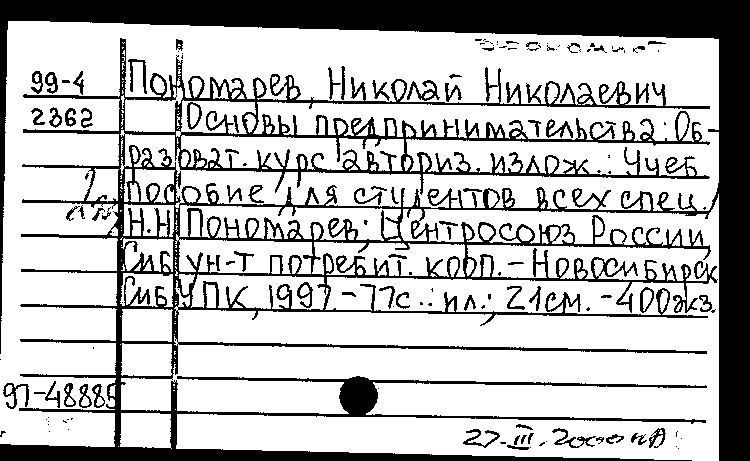 экономист
99-4 Пономарев, Николай Николаевич
2362 Основы предпринимательства: Об-
разоват. курс авториз. излож.: Учеб
пособие для студентов всех спец./
Н.Н Пономарев; Центросоюз России,
Сиб ун-т потребит. кооп. - Новосибирск
СибУПК, 1997. - 77с.: ил.; 21см. - 400экз.
97-48885
27.III.2000